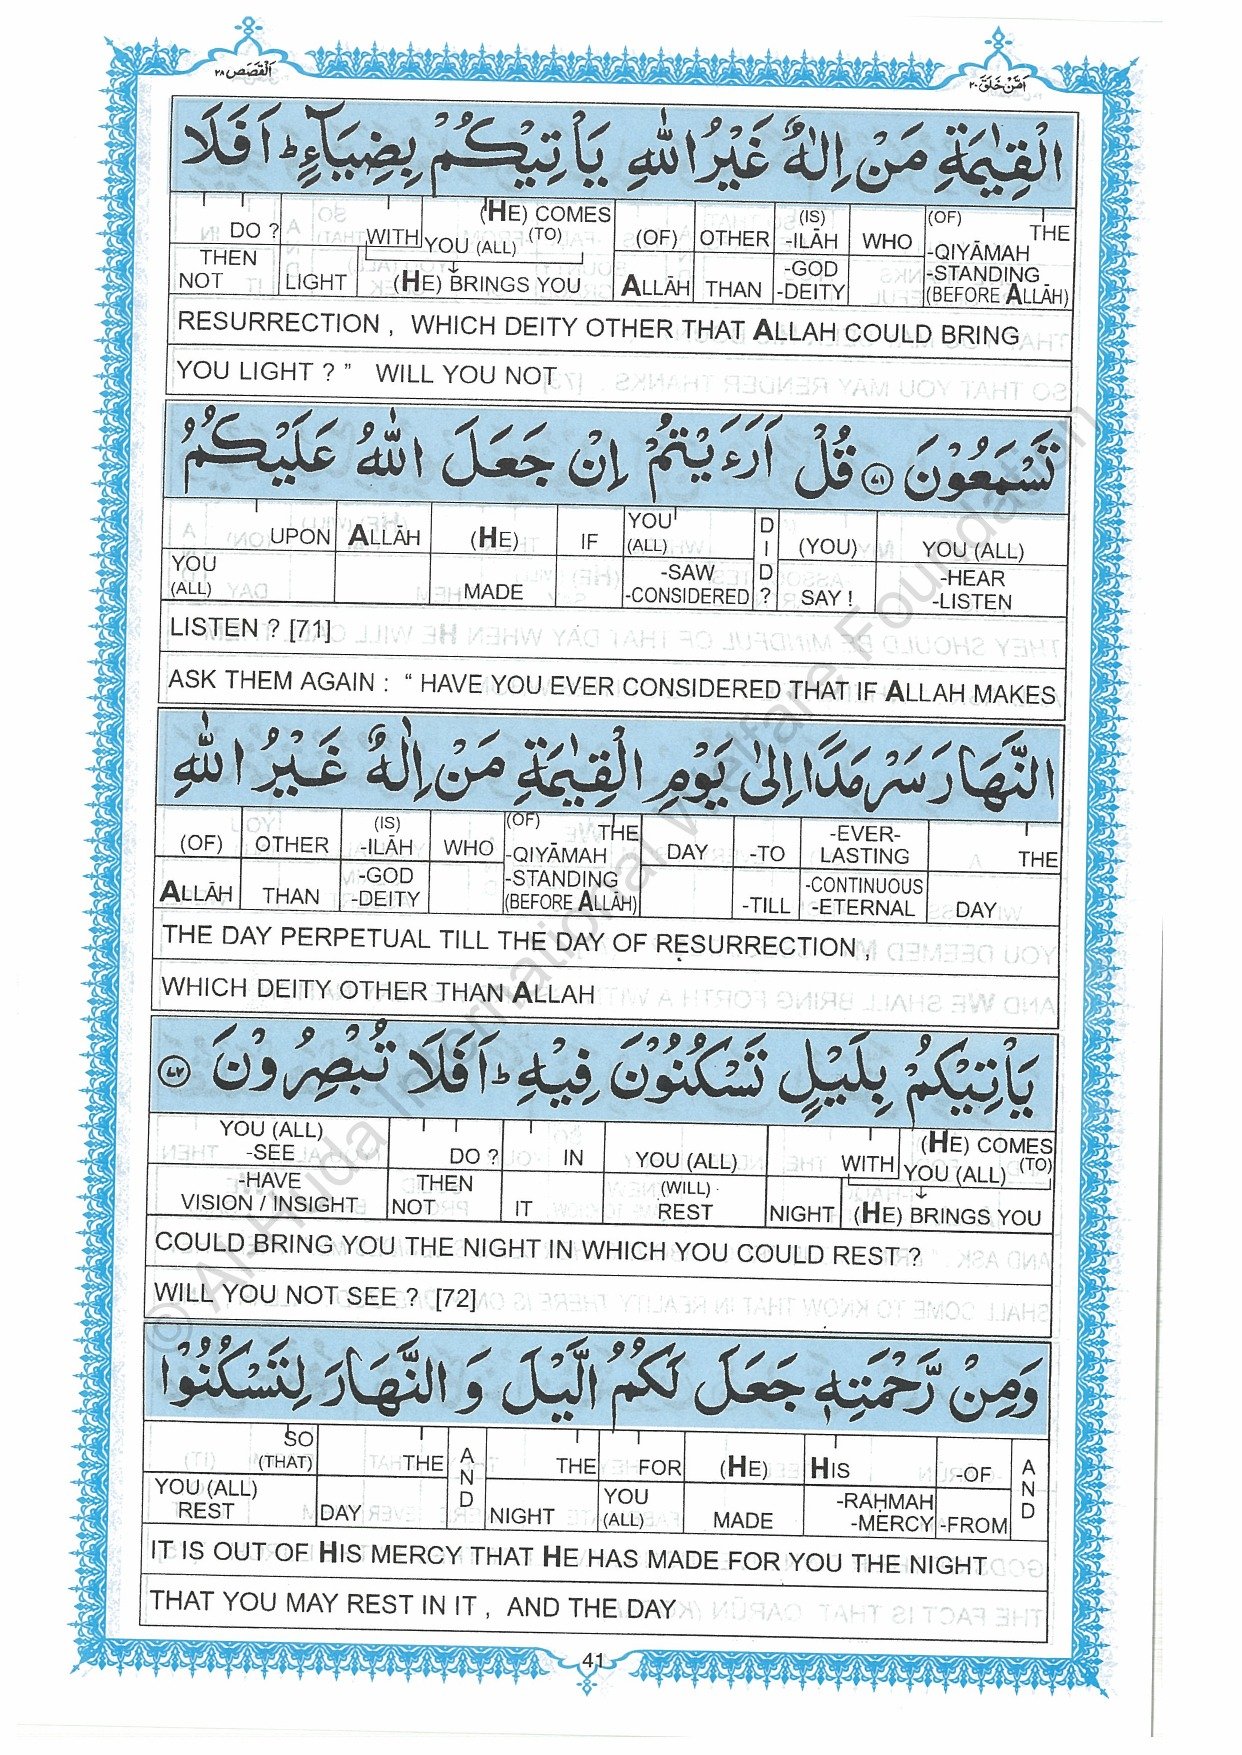 اَلْقَصَص ٢٨
اَمَّنْ خَلَقَ ٢٠
الْقِيٰمَةِ مَنْ اِلٰهٌ غَيْرُ اللّٰهِ يَاْتِيْكُمْ بِضِيَآءٍ ؕ اَفَلَا
DO ? WITH (HE) COMES (TO) YOU (ALL) (OF) OTHER (IS) -ILĀH WHO (OF) THE -QIYĀMAH
THEN NOT LIGHT (HE) BRINGS YOU ALLĀH THAN -GOD -DEITY -STANDING (BEFORE ALLĀH)
RESURRECTION , WHICH DEITY OTHER THAT ALLAH COULD BRING
YOU LIGHT ? ” WILL YOU NOT
تَسْمَعُوْنَ ﴿٧١﴾ قُلْ اَرَءَيْتُمْ اِنْ جَعَلَ اللّٰهُ عَلَيْكُمُ
UPON ALLĀH (HE) IF YOU (ALL) DID? (YOU) YOU (ALL)
YOU (ALL) MADE -SAW -CONSIDERED SAY ! -HEAR -LISTEN
LISTEN ? [71]
ASK THEM AGAIN : “ HAVE YOU EVER CONSIDERED THAT IF ALLAH MAKES
النَّهَارَ سَرْمَدًا اِلٰى يَوْمِ الْقِيٰمَةِ مَنْ اِلٰهٌ غَيْرُ اللّٰهِ
(OF) OTHER (IS) -ILĀH WHO (OF) THE -QIYĀMAH DAY -TO -EVER- LASTING THE
ALLĀH THAN -GOD -DEITY -STANDING (BEFORE ALLĀH) -TILL -CONTINUOUS -ETERNAL DAY
THE DAY PERPETUAL TILL THE DAY OF RESURRECTION ,
WHICH DEITY OTHER THAN ALLAH
يَاْتِيْكُمْ بِلَيْلٍ تَسْكُنُوْنَ فِيْهِ ؕ اَفَلَا تُبْصِرُوْنَ ﴿٧٢﴾
YOU (ALL) -SEE DO ? IN YOU (ALL) WITH (HE) COMES (TO) YOU (ALL)
-HAVE VISION / INSIGHT THEN NOT IT (WILL) REST NIGHT (HE) BRINGS YOU
COULD BRING YOU THE NIGHT IN WHICH YOU COULD REST ?
WILL YOU NOT SEE ? [72]
وَمِنْ رَّحْمَتِهٖ جَعَلَ لَكُمُ الَّيْلَ وَ النَّهَارَ لِتَسْكُنُوْا
SO (THAT) THE AND THE FOR (HE) HIS -OF AND
YOU (ALL) REST DAY NIGHT YOU (ALL) MADE -RAḤMAH -MERCY -FROM
IT IS OUT OF HIS MERCY THAT HE HAS MADE FOR YOU THE NIGHT
THAT YOU MAY REST IN IT , AND THE DAY
41
© Al-Huda International Welfare Foundation